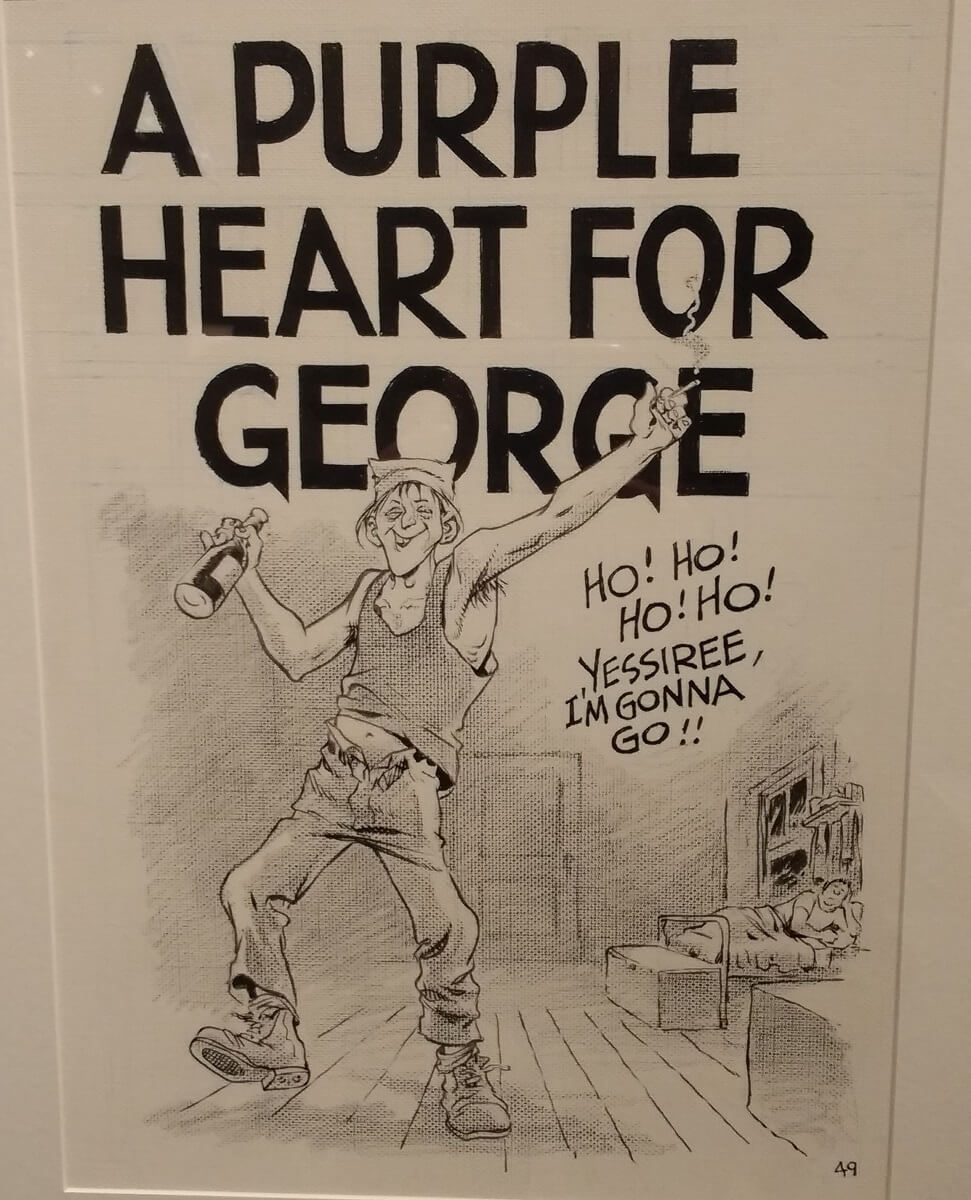 A PURPLE
HEART FOR
GEORGE
HO! HO!
HO! HO!
YESSIREE,
I'M GONNA
GO!!
49